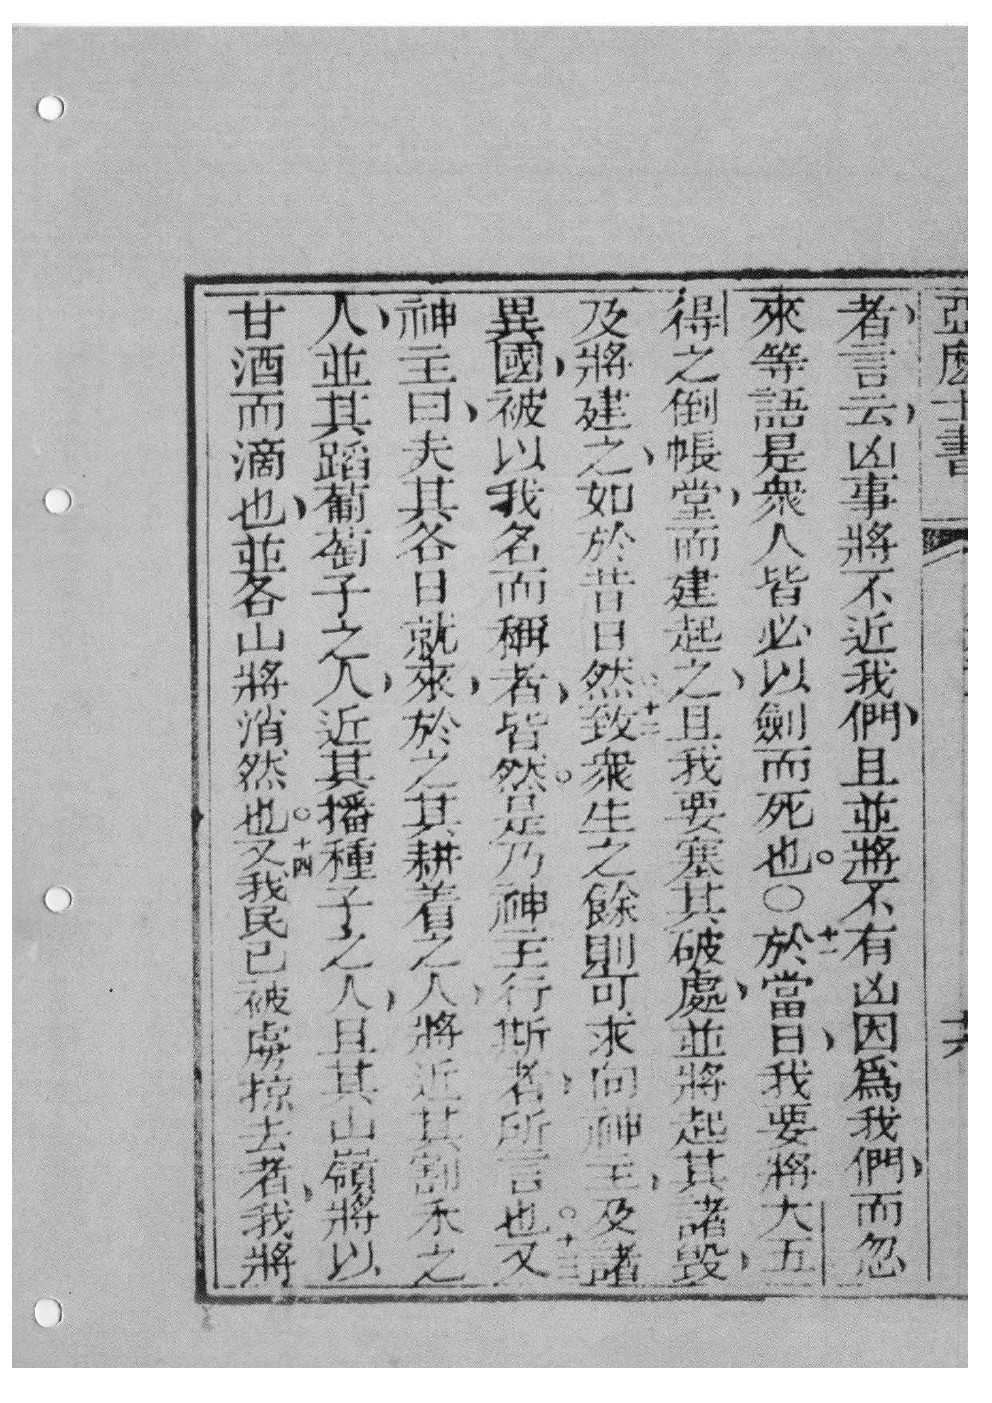 亞麽士書 共
者言云凶事將不近我們且並將不有凶因爲我們而忽
來等語是衆人皆必以劍而死也〇十一於當日我要將大五
得之倒帳堂而建起之且我要塞其破處並將起其諸毀
及將建之如於昔日然十二致衆生之餘則可求向神主及諸
異國被以我名而稱者皆然是乃神主行斯者所言也十三又
神主曰夫其各日就來於之其耕着之人將近其割禾之
人並其蹈葡萄子之人近其播種子之人且其山嶺將以
甘酒而滴也並各山將消然也十四又我民已被虜掠去者我將